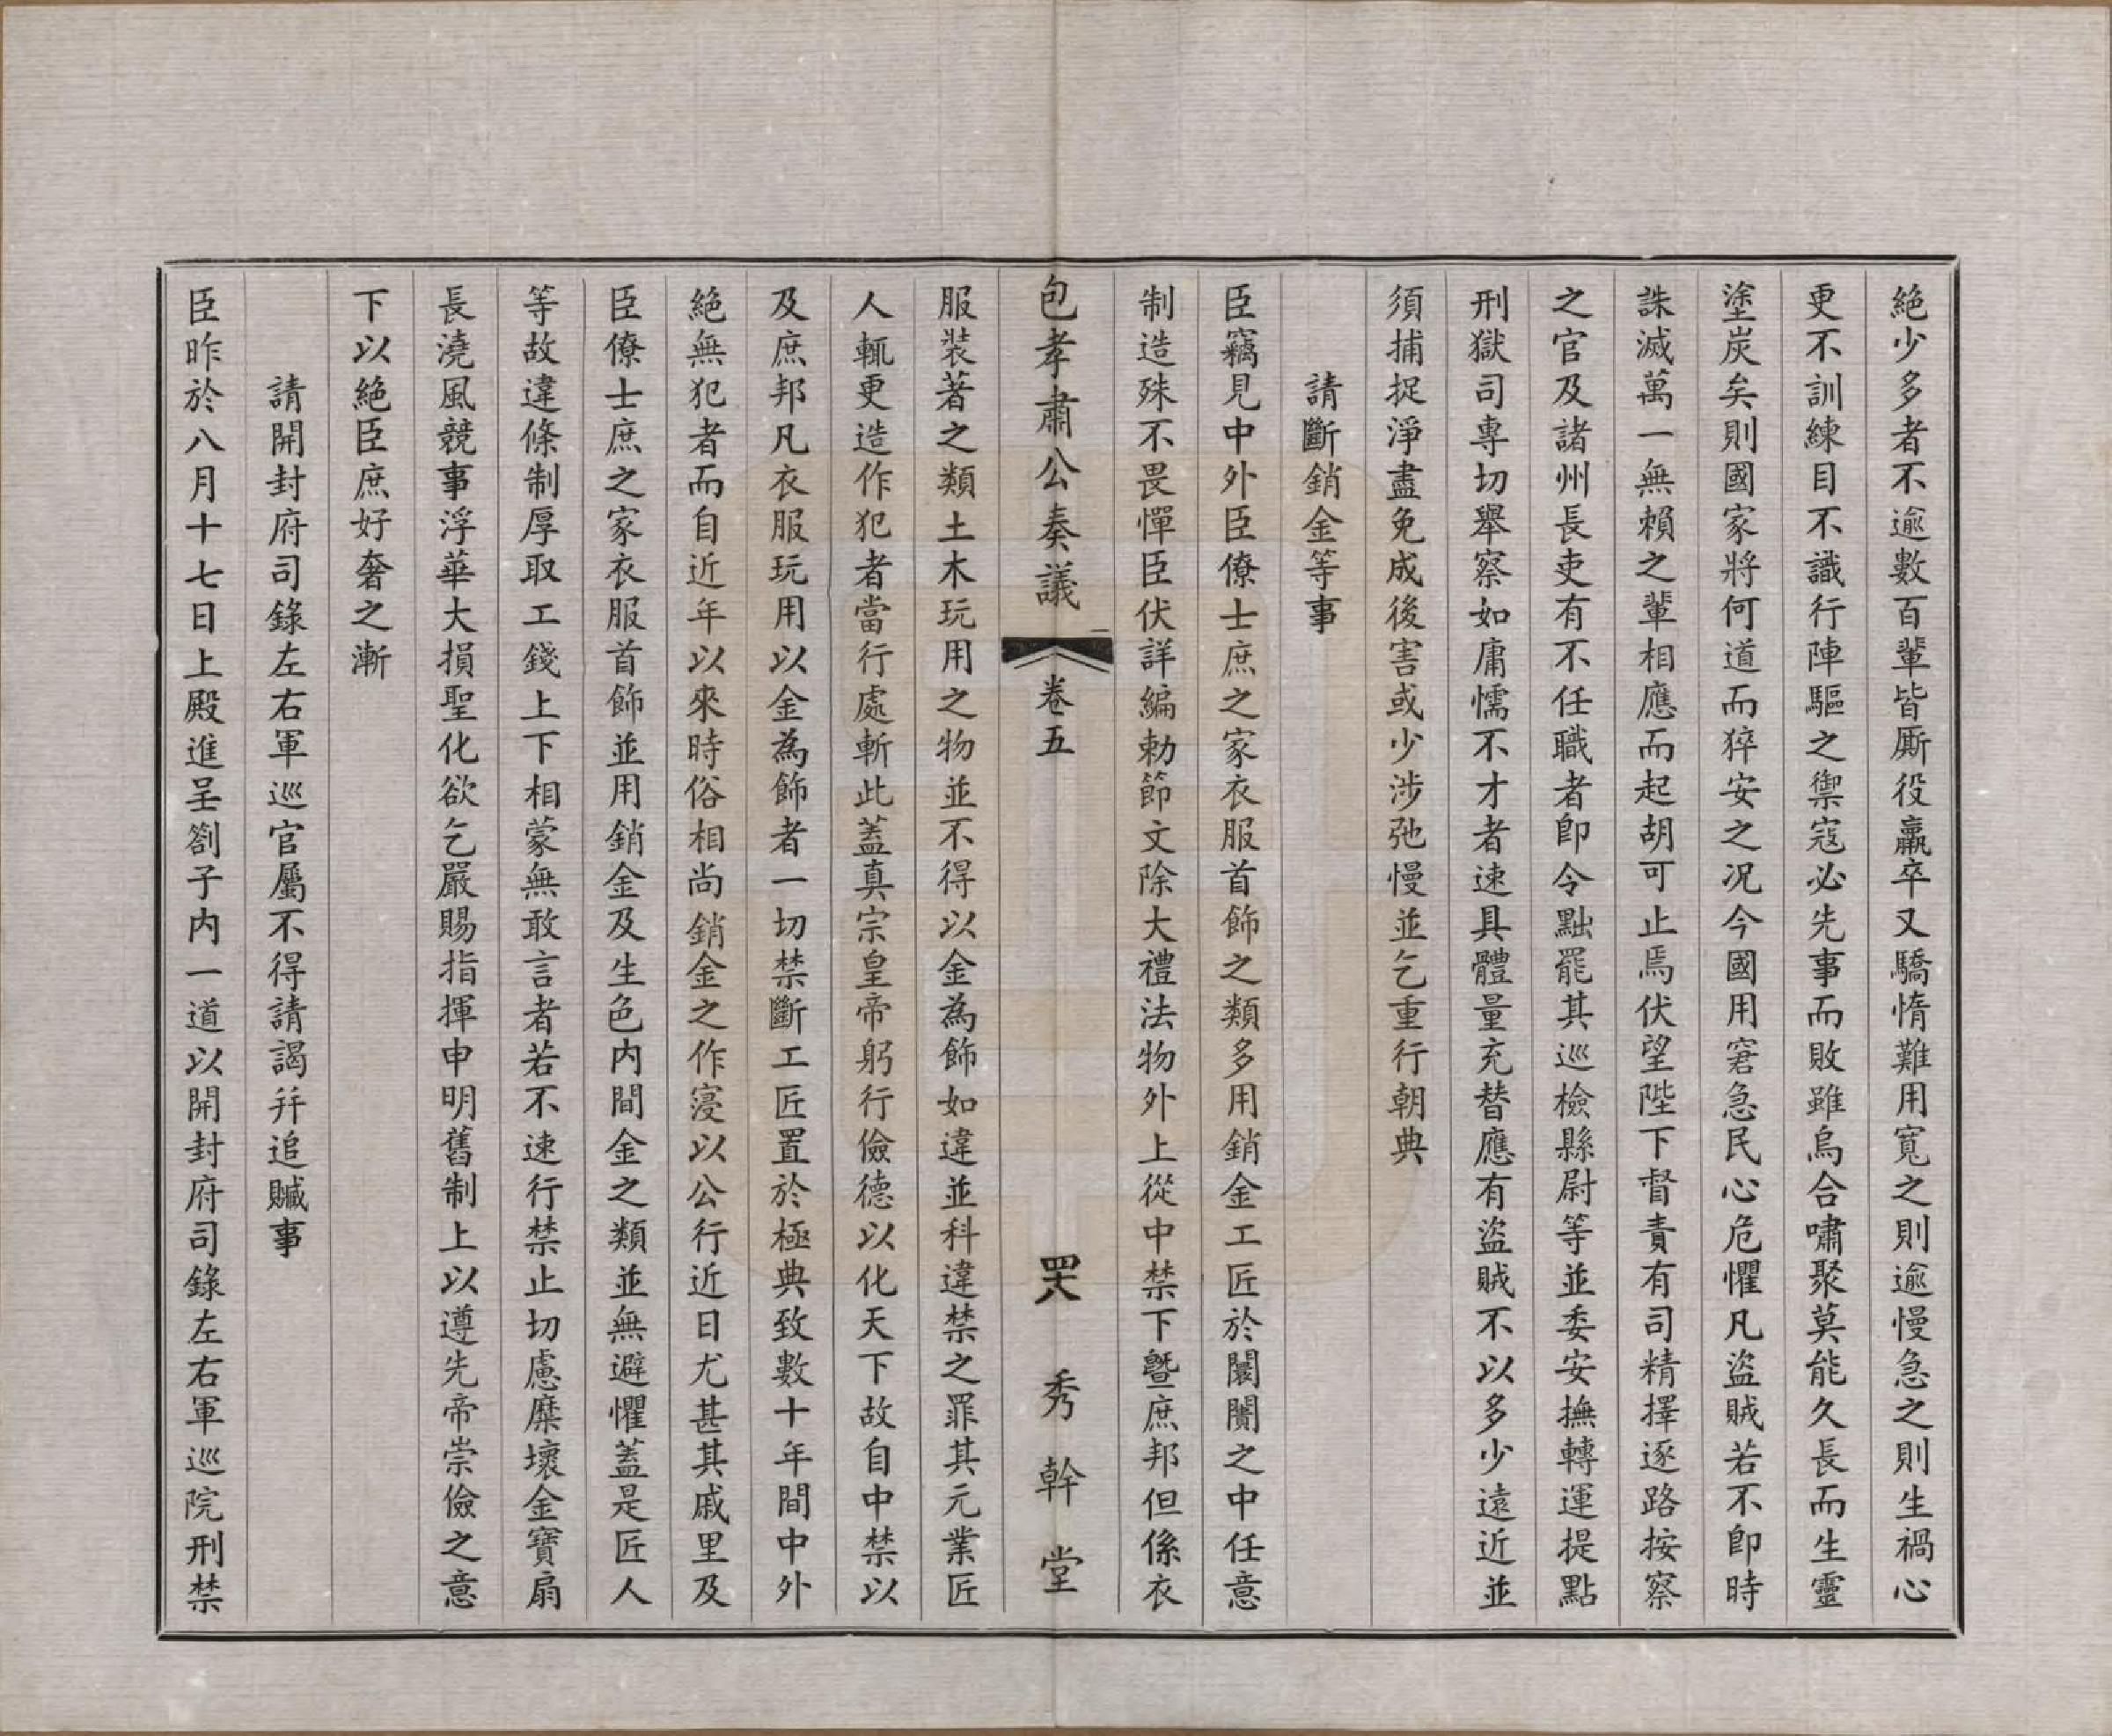 絕少多者不逾數百輩皆廝役羸卒又驕惰難用寬之則逾慢急之則生禍心
更不訓練目不識行陣驅之禦寇必先事而敗雖烏合嘯聚莫能久長而生靈
塗炭矣則國家將何道而猝安之况今國用窘急民心危懼凡盜賊若不卽時
誅滅萬一無賴之輩相應而起胡可止焉伏望陛下督責有司精擇逐路按察
之官及諸州長吏有不任職者卽令黜罷其巡檢縣尉等並委安撫轉運提點
刑獄司專切舉察如庸懦不才者速具體量充替應有盜賊不以多少遠近並
須捕捉淨盡免成後害或少涉弛慢並乞重行朝典
請斷銷金等事
臣竊見中外臣僚士庶之家衣服首飾之類多用銷金工匠於闤闠之中任意
制造殊不畏憚臣伏詳編勅節文除大禮法物外上從中禁下曁庶邦但係衣
包孝肅公奏議
卷五
罢 秀幹堂
服裝著之類土木玩用之物並不得以金為飾如違並科違禁之罪其元業匠
人輒更造作犯者當行處斬此蓋真宗皇帝躬行儉德以化天下故自中禁以
及庶邦凡衣服玩用以金為飾者一切禁斷工匠置於極典致數十年間中外
絕無犯者而自近年以來時俗相尚銷金之作寖以公行近日尤甚其戚里及
臣僚士庶之家衣服首飾並用銷金及生色內間金之類並無避懼蓋是匠人
等故違條制厚取工錢上下相蒙無敢言者若不速行禁止切慮糜壞金寶扇
長澆風競事浮華大損聖化欲乞嚴賜指揮申明舊制上以遵先帝崇儉之意
下以絕臣庶好奢之漸
請開封府司錄左右軍巡官屬不得請謁幷追贓事
臣昨於八月十七日上殿進呈劄子內一道以開封府司錄左右軍巡院刑禁